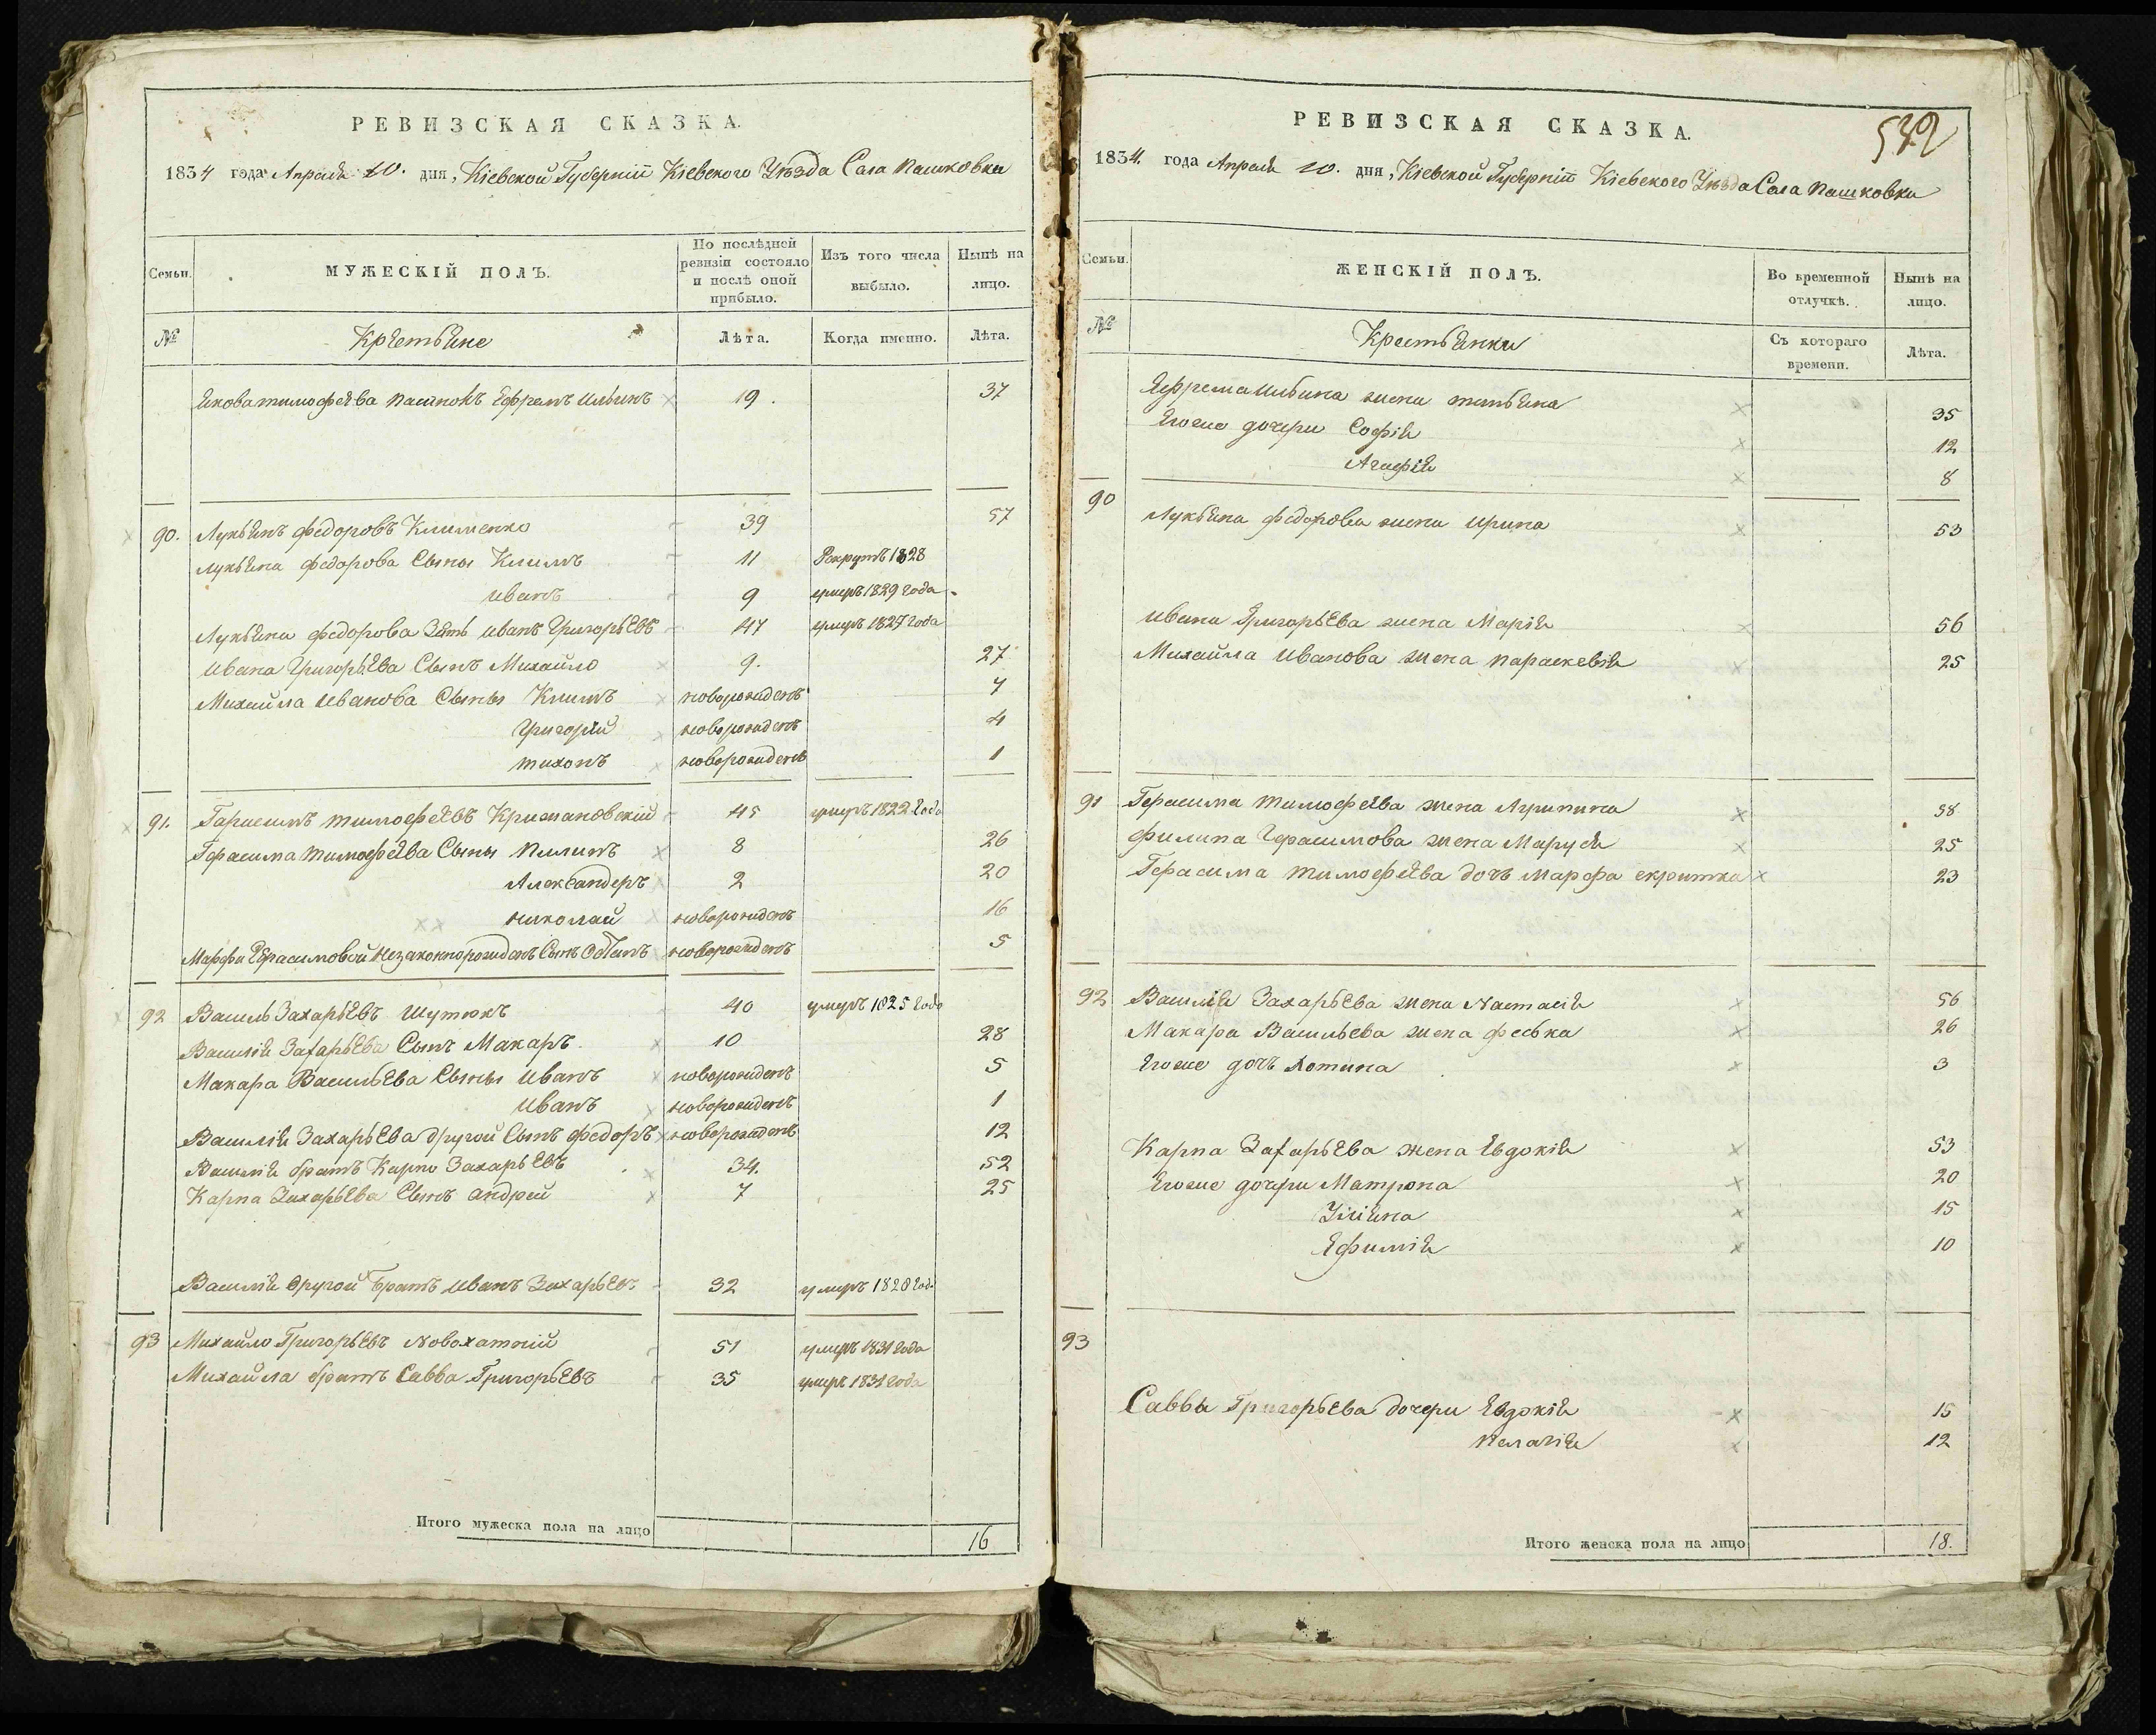 РЕВИЗСКАЯ СКАЗКА.
1834 года Апреля 10. дня, Кіевской Губерніи Кіевского Уѣзда Села Пашковки
Семьи.
МУЖЕСКІЙ ПОЛЪ.
По послѣдней ревизіи состояло и послѣ оной прибыло.
Изъ того числа выбыло.
Нынѣ на лицо.
№
Крѣстьяне
Лѣта.
Когда именно.
Лѣта.
Якова тимофеѣва Ефремъ Ильинъ 19. 37
90. Лукьянъ федоровъ Клименко 39 57
Лукьяна федорова Сыны Климъ 11 Рекрутъ 1828
иванъ 9 умеръ 1829 года
Лукьяна федорова Зять иванъ Григорьѣвъ 47 умеръ 1827 года
ивана Григорьѣва Сынъ Михайло 9. 27
Михайла иванова Сыны Климъ новорожденъ 7
Григорій новорожденъ 4
тихонъ новорожденъ 1
91. Гарасимъ тимофеѣвъ Крижановскій 45 умеръ 1822 года
Герасима тимофеѣва Сыны Пилипъ 8 26
Александеръ 2 20
николай новорожденъ 16
Марфы Герасимовой незаконнорожденъ Сынъ новорожденъ 5
92 Василь Захарьѣвъ Шутюкъ 40 умеръ 1825 года
Василія Захарьѣва Сынъ Макаръ. 10 28
Макара Васильѣва Сыны иванъ новорожденъ 5
иванъ новорожденъ 1
Василія Захарьѣва другой Сынъ федоръ новорожденъ 12
Василія братъ Карпо Захарьѣвъ 34. 52
Карпа Захарьѣва Сынъ андрей 7 25
Василія другой братъ иванъ Захарьѣвъ 32 умеръ 1828 года
93 Михайло Григорьѣвъ Новохатній 51 умеръ 1831 года
Михайла братъ Савва Григорьѣвъ 35 умеръ 1831 года
Итого мужеска пола на лицо 16
РЕВИЗСКАЯ СКАЗКА.
542
1834. года Апреля 10. дня, Кіевской Губерніи Кіевского Уѣзда Села Пашковки
Семьи.
ЖЕНСКІЙ ПОЛЪ.
Во временной отлучкѣ.
Нынѣ на лицо.
№
Крестьянки
Съ котораго времени.
Лѣта.
Ефрема ильина жена татьяна 35
Егоже дочери Софія 12
Агафія 8
90 Лукьяна федорова жена ирина 53
ивана Григорьѣва жена Марія 56
Михайла иванова жена параскевія 25
91 Герасима тимофеѣва жена Агрипина 58
филипа Герасимова жена Маруся 25
Герасима тимофеѣва дочъ марфа скритка 23
92 Василія Захарьѣва жена Настасія 56
Макара Васильева жена феська 26
Егоже дочъ 3
Карпа Захарьѣва жена Евдокія 53
Егоже дочери Матрона 20
Уліяна 15
Ефимія 10
93
Саввы Григорьева дочери Евдокія 15
пелагія 12
Итого женска пола на лицо 18.